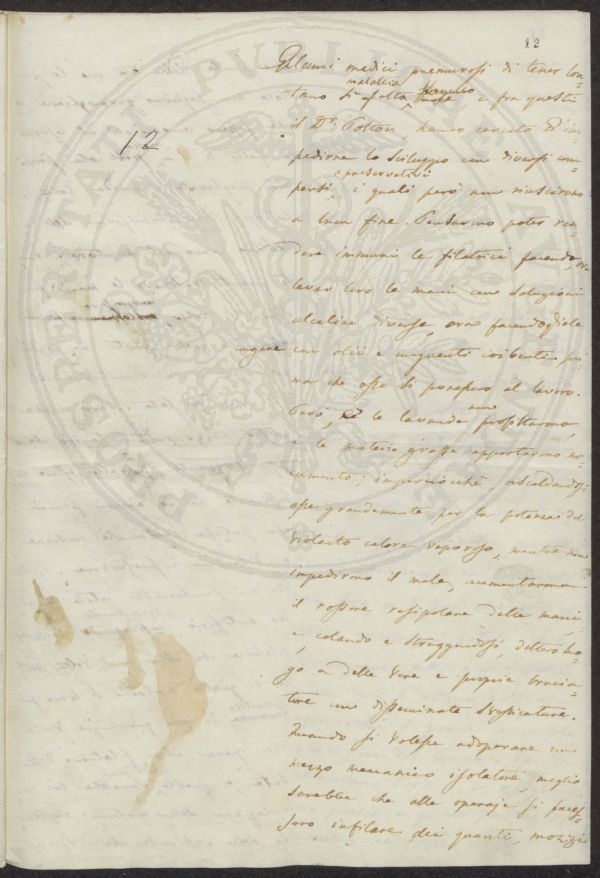 12
Alcuni medici premurosi di tener lon-
malattia
tano sì fatta e fra questi
12
il Dr. Potton, hanno cercato d'im-
pedirne lo sviluppo con diversi com-
preservativi
pensi i quali però non riuscirono
a buon fine. Pensarono poter ren-
dere immuni le filatrici facendo, o
lavar loro le mani con soluzioni
alcaline diverse, ora facendogliele
ungere con olii e unguenti pri-
ma che esse si ponessero al lavoro.
Però, le lavande non profittarono,
e le materie grasse apportarono no-
cumento: imperciocchè, riscaldandosi
esse grandemente per la potenza del
violento calore vaporoso, mentre non
impedirono il male, aumentarono
il rossore resipolare delle mani
e, colando e struggendosi, dettero luo-
go a delle vere e proprie brucia-
ture con disseminate vescicature.
Quando si volesse adoperare un
mezzo meccanico isolatore, meglio
sarebbe che alle operaje si faces-
sero infilare dei guanti, mozzi
PROSPERITATI PVBLICAE AVGENDAE